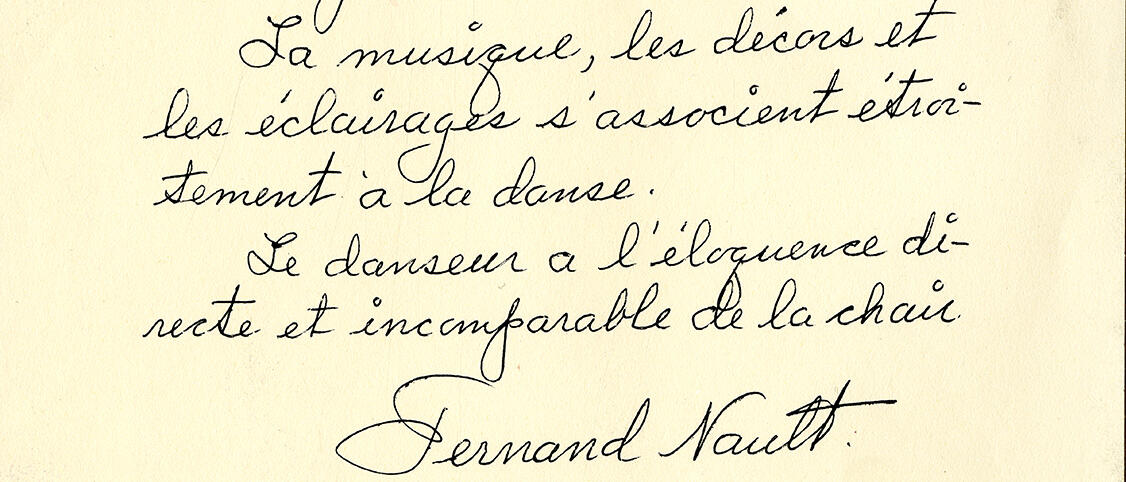 La musique, les décors et
les éclairages s'associent étroi-
tement à la danse.
Le danseur a l'éloquence di-
recte et incomparable de la chair
Fernand Nault.